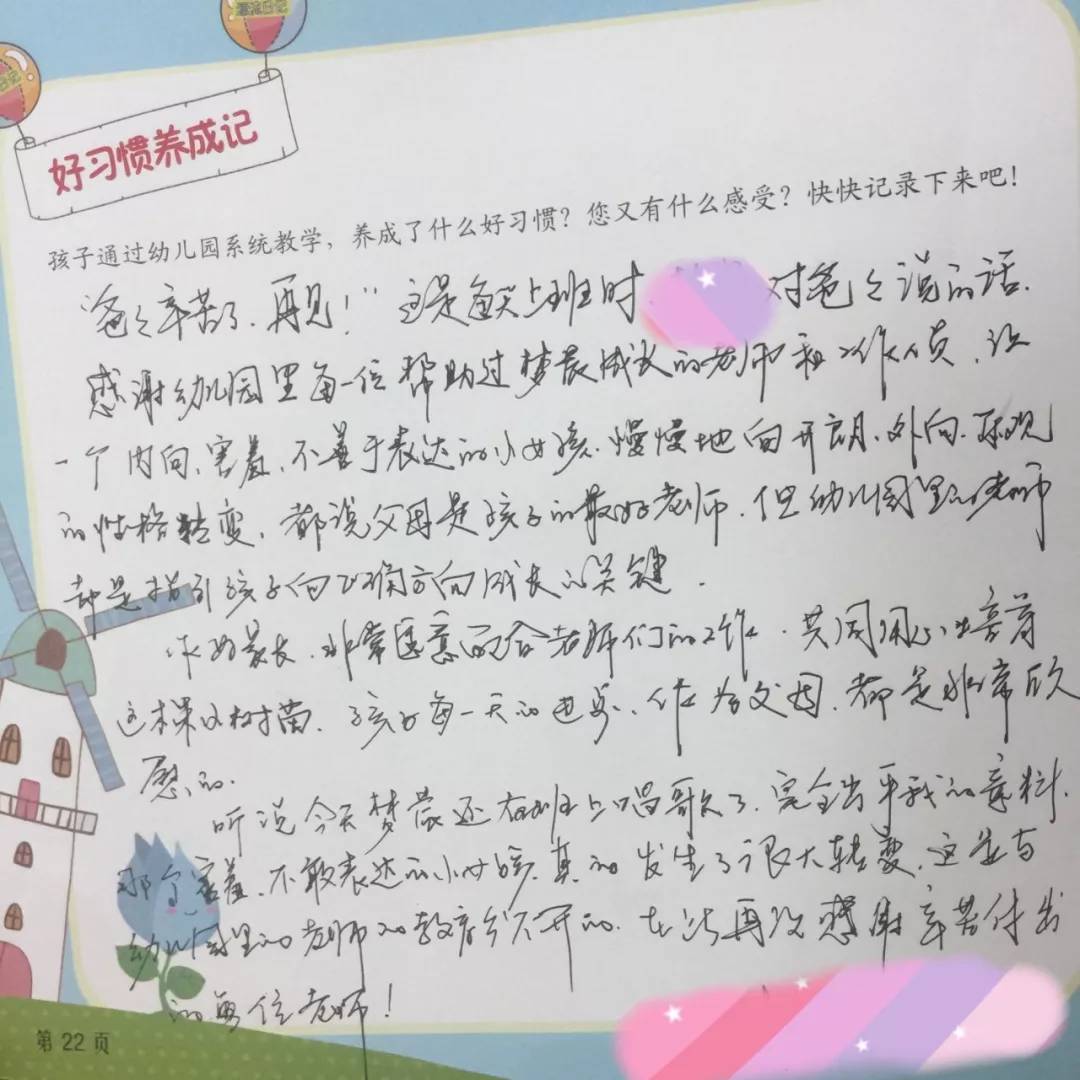 漫滨日记
日记
好习惯养成记
孩子通过幼儿园系统教学，养成了什么好习惯？您又有什么感受？快快记录下来吧！
“爸爸辛苦了，再见！”这是每天上班时 对爸爸说的话.
感谢幼儿园里每一位帮助过梦宸成长的老师和工作人员，让
一个内向、害羞、不善于表达的小女孩.慢慢地向开朗、外向、乐观
的性格转变，都说父母是孩子的最好老师，但幼儿园里的老师
却是指引孩子向正确方向成长的关键.
作为家长，非常愿意配合老师们的工作，共同用心培育
这棵小树苗.孩子每一天的进步、作为父母，都是非常欣
慰的.
听说今天梦宸还在班上唱歌了，完全出乎我的意料，
那个害羞、不敢表达的小女孩，真的发生了很大转变，这是与
幼儿园里的老师的教育分不开的，在此再次感谢辛苦付出
的每位老师！
第 22 页